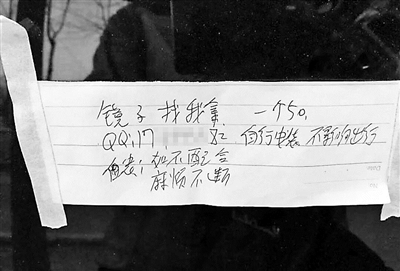 镜子 找我拿 一个50,
QQ:17 82 自行安装 不影响出行
自患: 如不配合
麻烦不断